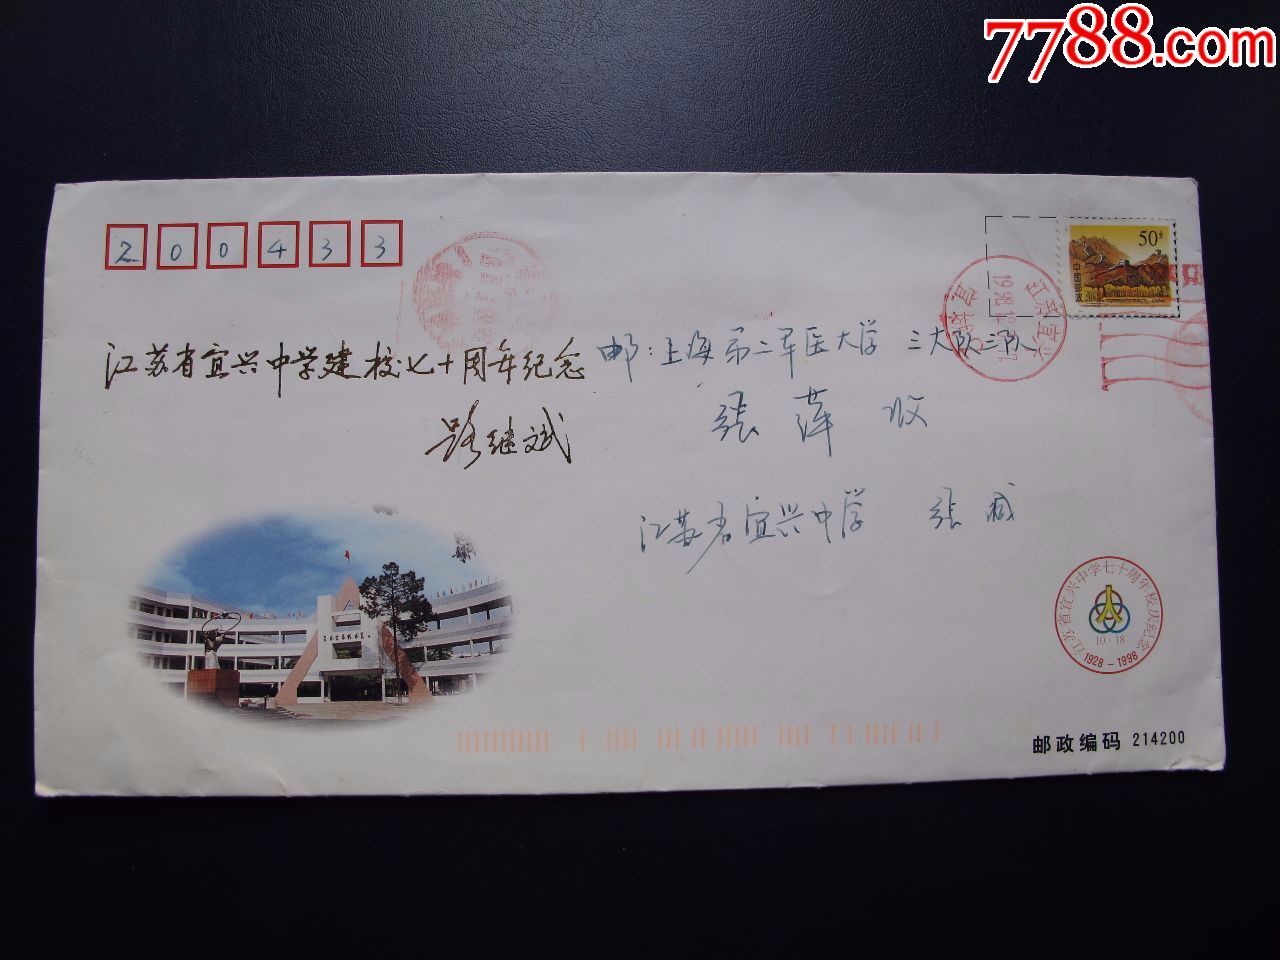 7788.com
200433
50分
中国邮政
CHINA
江苏宜兴
1998.12
江苏省宜兴中学建校七十周年纪念
路继斌
邮:上海第二军医大学 三大队三队
张萍 收
江苏省宜兴中学 张
江苏省宜兴中学七十周年校庆纪念
10·18
1928-1998
邮政编码 214200